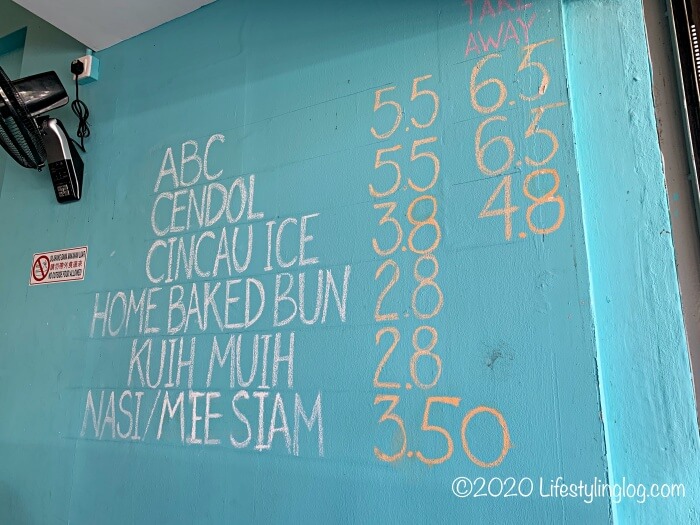 TAKE
AWAY
ABC 5.5 6.5
CENDOL 5.5 6.5
CINCAU ICE 3.8 4.8
HOME BAKED BUN 2.8
KUIH MUIH 2.8
NASI/MEE SIAM 3.50
DILARANG BAWA MAKANAN LUAR
NO OUTSIDE FOOD ALLOWED
©2020 Lifestylinglog.com